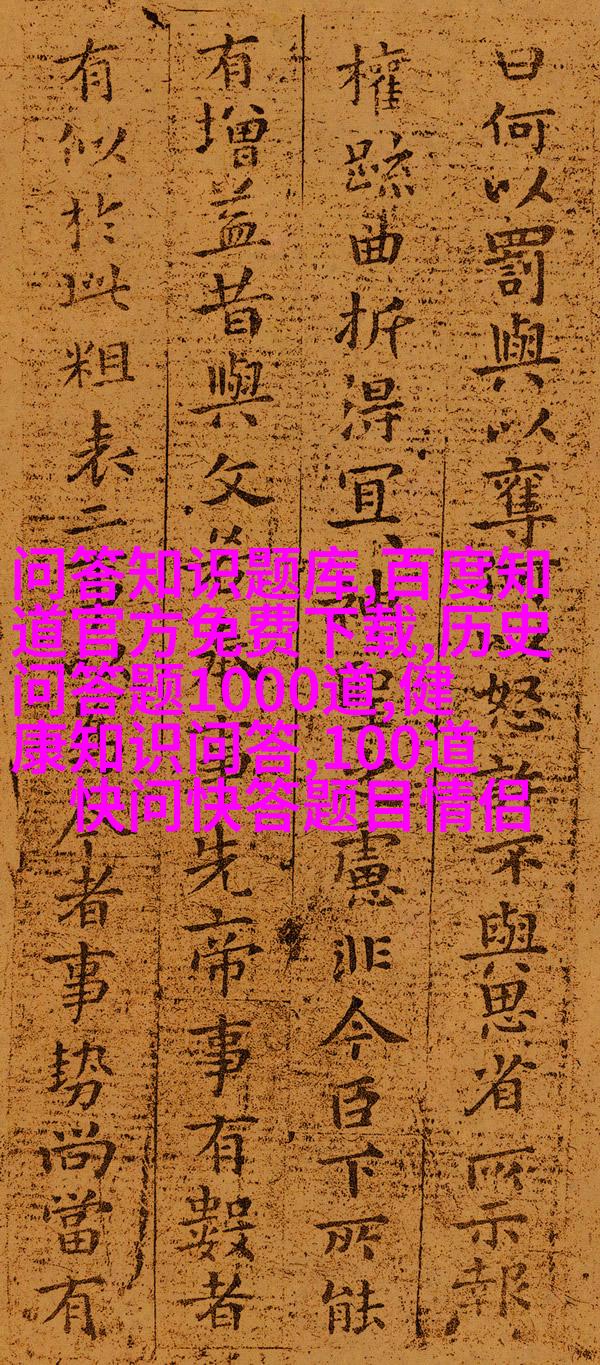 曰何以罰與以奪怒許不與思省所示報
權疏曲折得宜神慮非今臣下所能
有增益昔與文先帝事有數者
有似於此粗表二者事勢尚當有
问答知识题库,百度知
道官方免费下载,历史
问答题1000道,健
康知识问答,100道
快问快答题目情侣